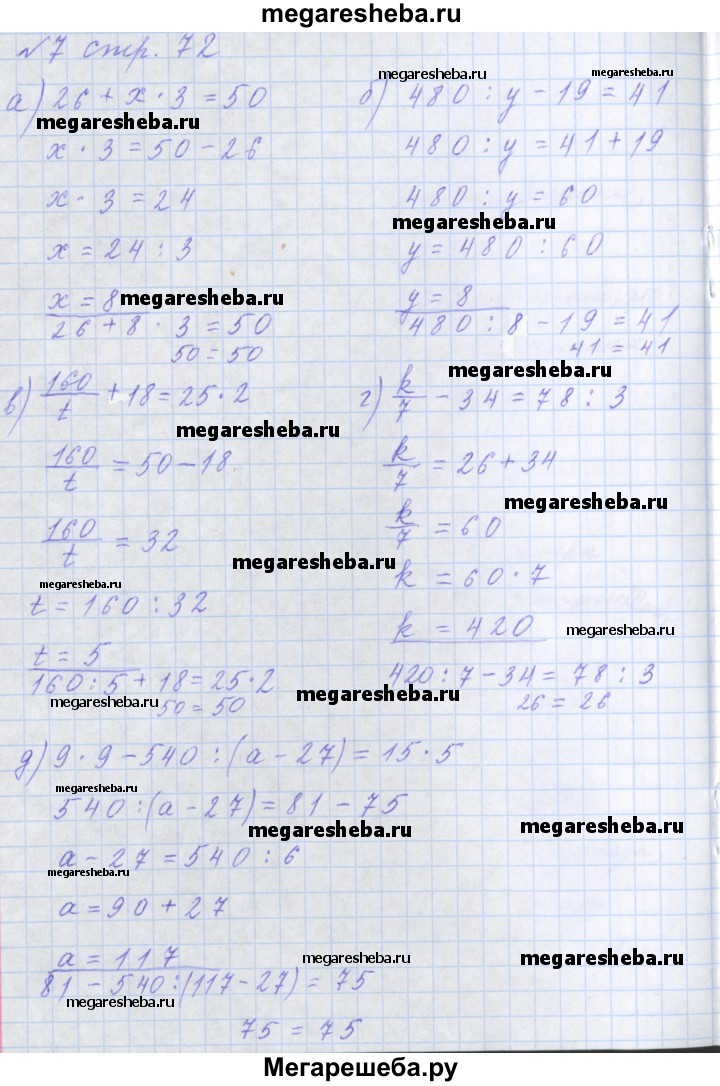 megaresheba.ru
№7 стр. 72
а) 26 + x · 3 = 50
megaresheba.ru
x · 3 = 50 - 26
x · 3 = 24
x = 24 : 3
x = 8
megaresheba.ru
26 + 8 · 3 = 50
50 = 50
megaresheba.ru
megaresheba.ru
б) 480 : y - 19 = 41
480 : y = 41 + 19
480 : y = 60
megaresheba.ru
y = 480 : 60
y = 8
480 : 8 - 19 = 41
41 = 41
megaresheba.ru
в) 160/t + 18 = 25 · 2
megaresheba.ru
160/t = 50 - 18
160/t = 32
megaresheba.ru
megaresheba.ru
t = 160 : 32
t = 5
160 : 5 + 18 = 25 · 2
megaresheba.ru
50 = 50
г) k/7 - 34 = 78 : 3
k/7 = 26 + 34
megaresheba.ru
k/7 = 60
k = 60 · 7
k = 420
megaresheba.ru
420 : 7 - 34 = 78 : 3
megaresheba.ru
26 = 26
д) 9 · 9 - 540 : (a - 27) = 15 · 5
megaresheba.ru
540 : (a - 27) = 81 - 75
megaresheba.ru
megaresheba.ru
a - 27 = 540 : 6
megaresheba.ru
a = 90 + 27
a = 117
megaresheba.ru
megaresheba.ru
81 - 540 : (117 - 27) = 75
megaresheba.ru
megaresheba.ru
75 = 75
Мегарешеба.ру